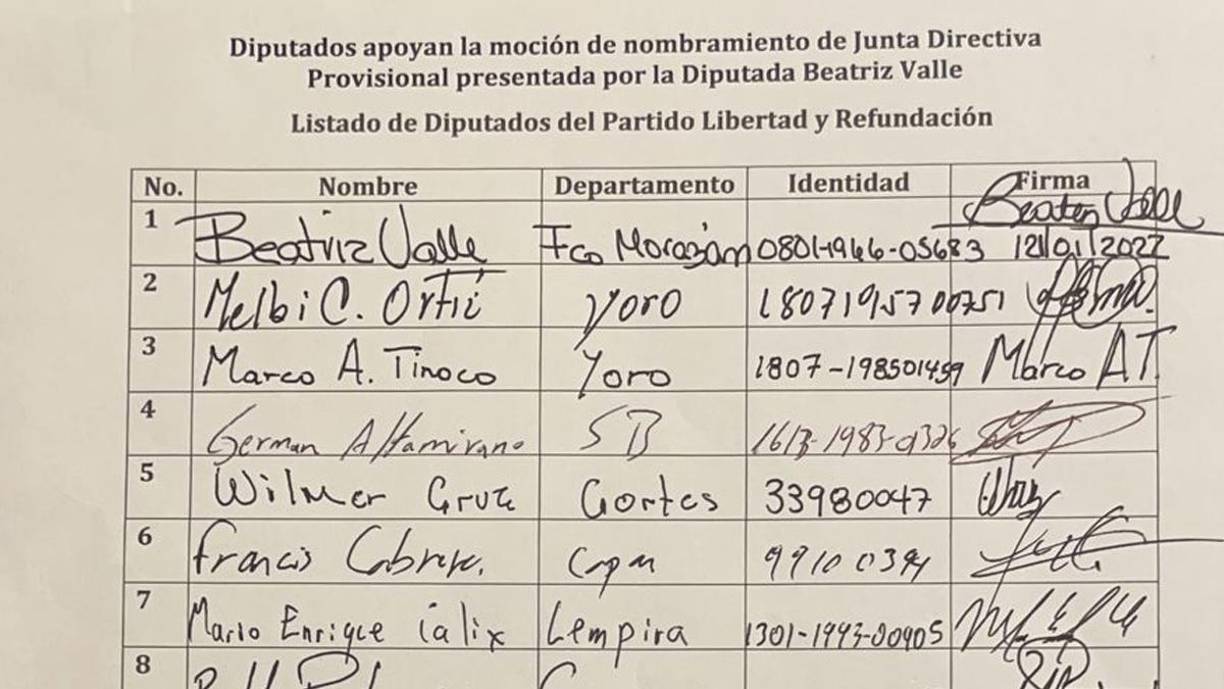 Diputados apoyan la moción de nombramiento de Junta Directiva
Provisional presentada por la Diputada Beatriz Valle
Listado de Diputados del Partido Libertad y Refundación
No. Nombre Departamento Identidad Firma
1 Beatriz Valle Fco Morazán 0801-1966-05683 Beatriz Valle 12/01/2022
2 Melbi C. Ortiz Yoro
3 Marco A. Tinoco Yoro 1807-198501459 Marco A T.
4 German Altamirano SB 1613-1983-0326
5 Wilmer Cruz Cortes 33980047
6 Francis Cabrera. 99100394
7 Mario Enrique Calix Lempira 1301-1993-00905
8